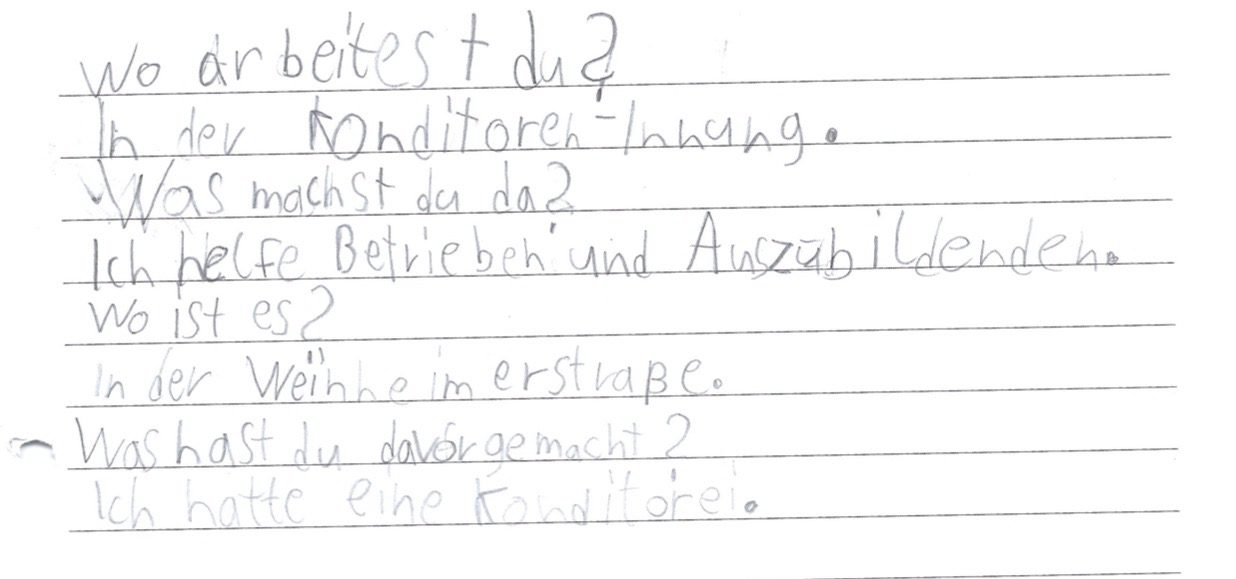 Wo arbeitest du?
In der Konditoren-Innung.
Was machst du da?
Ich helfe Betrieben und Auszubildenden.
Wo ist es?
In der Weinheimerstraße.
Was hast du davor gemacht?
Ich hatte eine Konditorei.